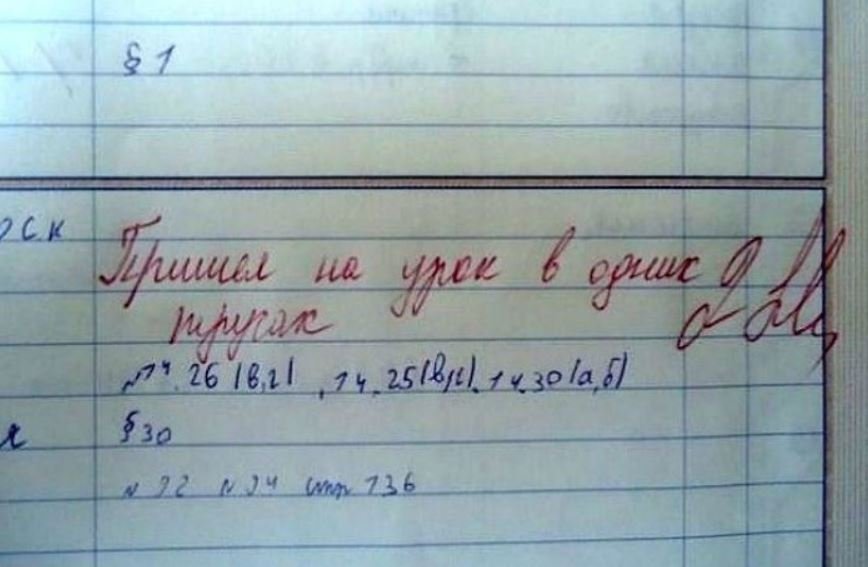 § 1
рск
Пришел на урок в одних 2
трусах
№ 14.26 (в,г), 14.25(в,г), 14.30(а,б)
я
§ 30
№ 92 № 94 стр 136